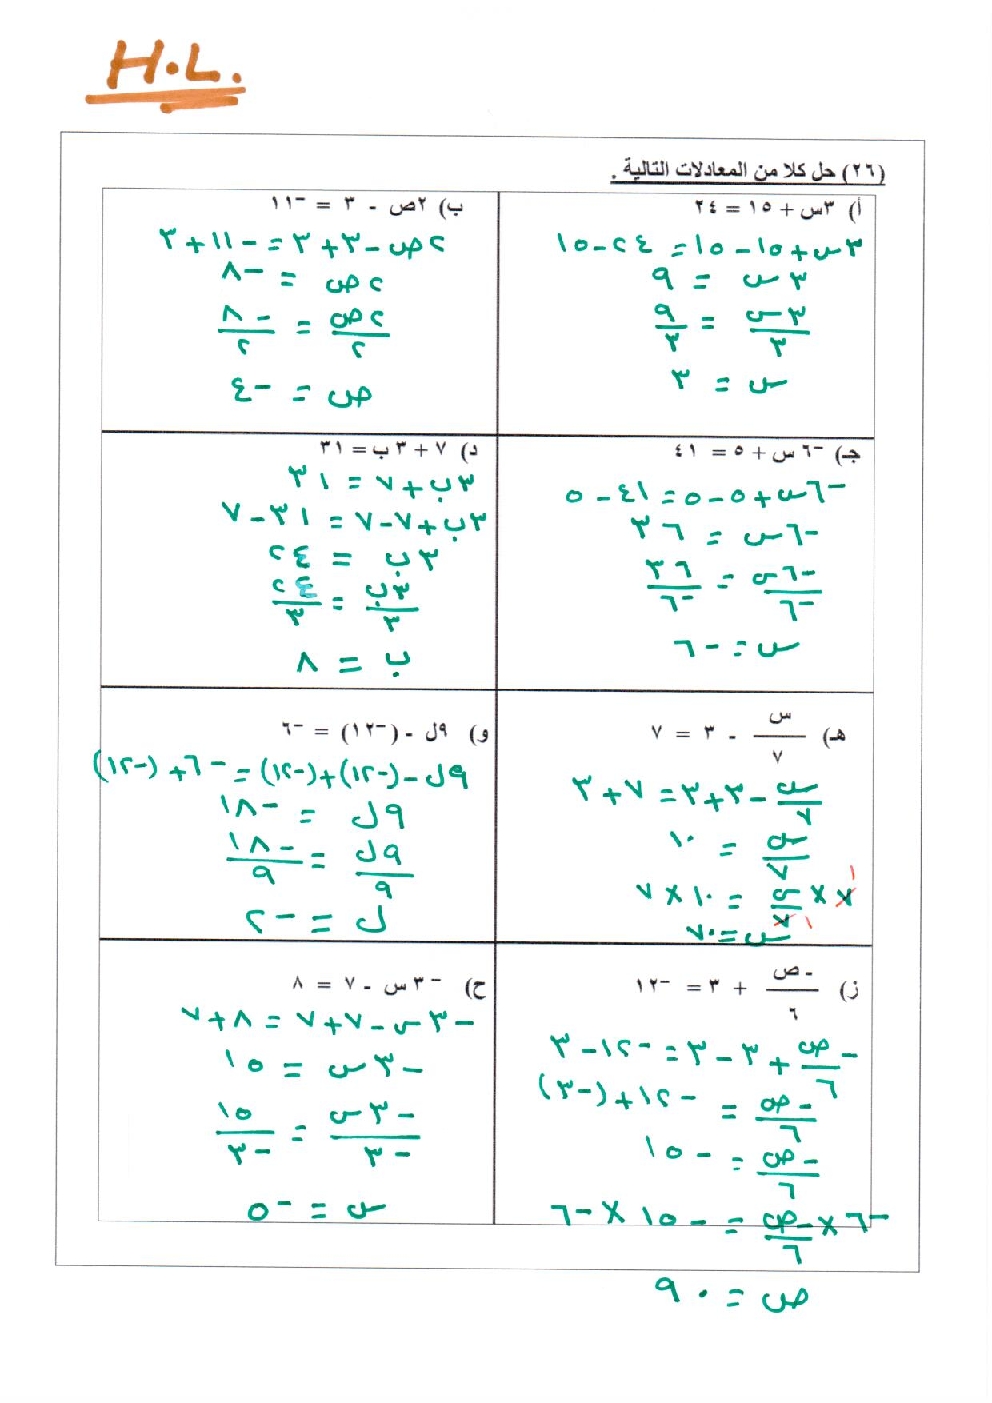 H.L.
(٢٦) حل كلا من المعادلات التالية .
أ) ٣س + ١٥ = ٢٤
٣س + ١٥ - ١٥ = ٢٤ - ١٥
٣س = ٩
٣س/٣ = ٩/٣
س = ٣
ب) ٢ص - ٣ = -١١
٢ص - ٣ + ٣ = -١١ + ٣
٢ص = -٨
٢ص/٢ = -٨/٢
ص = -٤
جـ) -٦س + ٥ = ٤١
-٦س + ٥ - ٥ = ٤١ - ٥
-٦س = ٣٦
-٦س/-٦ = ٣٦/-٦
س = -٦
د) ٧ + ٣ب = ٣١
٣ب + ٧ = ٣١
٣ب + ٧ - ٧ = ٣١ - ٧
٣ب = ٢٤
٣ب/٣ = ٢٤/٣
ب = ٨
هـ) س/٧ - ٣ = ٧
س/٧ - ٣ + ٣ = ٧ + ٣
س/٧ = ١٠
٧ × س/٧ = ١٠ × ٧
١ ١
س = ٧٠
و) ٩ل - (-١٢) = -٦
٩ل - (-١٢) + (-١٢) = -٦ + (-١٢)
٩ل = -١٨
٩ل/٩ = -١٨/٩
ل = -٢
ز) -ص/٦ + ٣ = -١٢
-ص/٦ + ٣ - ٣ = -١٢ - ٣
-ص/٦ = -١٢ + (-٣)
-ص/٦ = -١٥
-٦ × -ص/٦ = -١٥ × -٦
ص = ٩٠
ح) -٣س - ٧ = ٨
-٣س - ٧ + ٧ = ٨ + ٧
-٣س = ١٥
-٣س/-٣ = ١٥/-٣
س = -٥